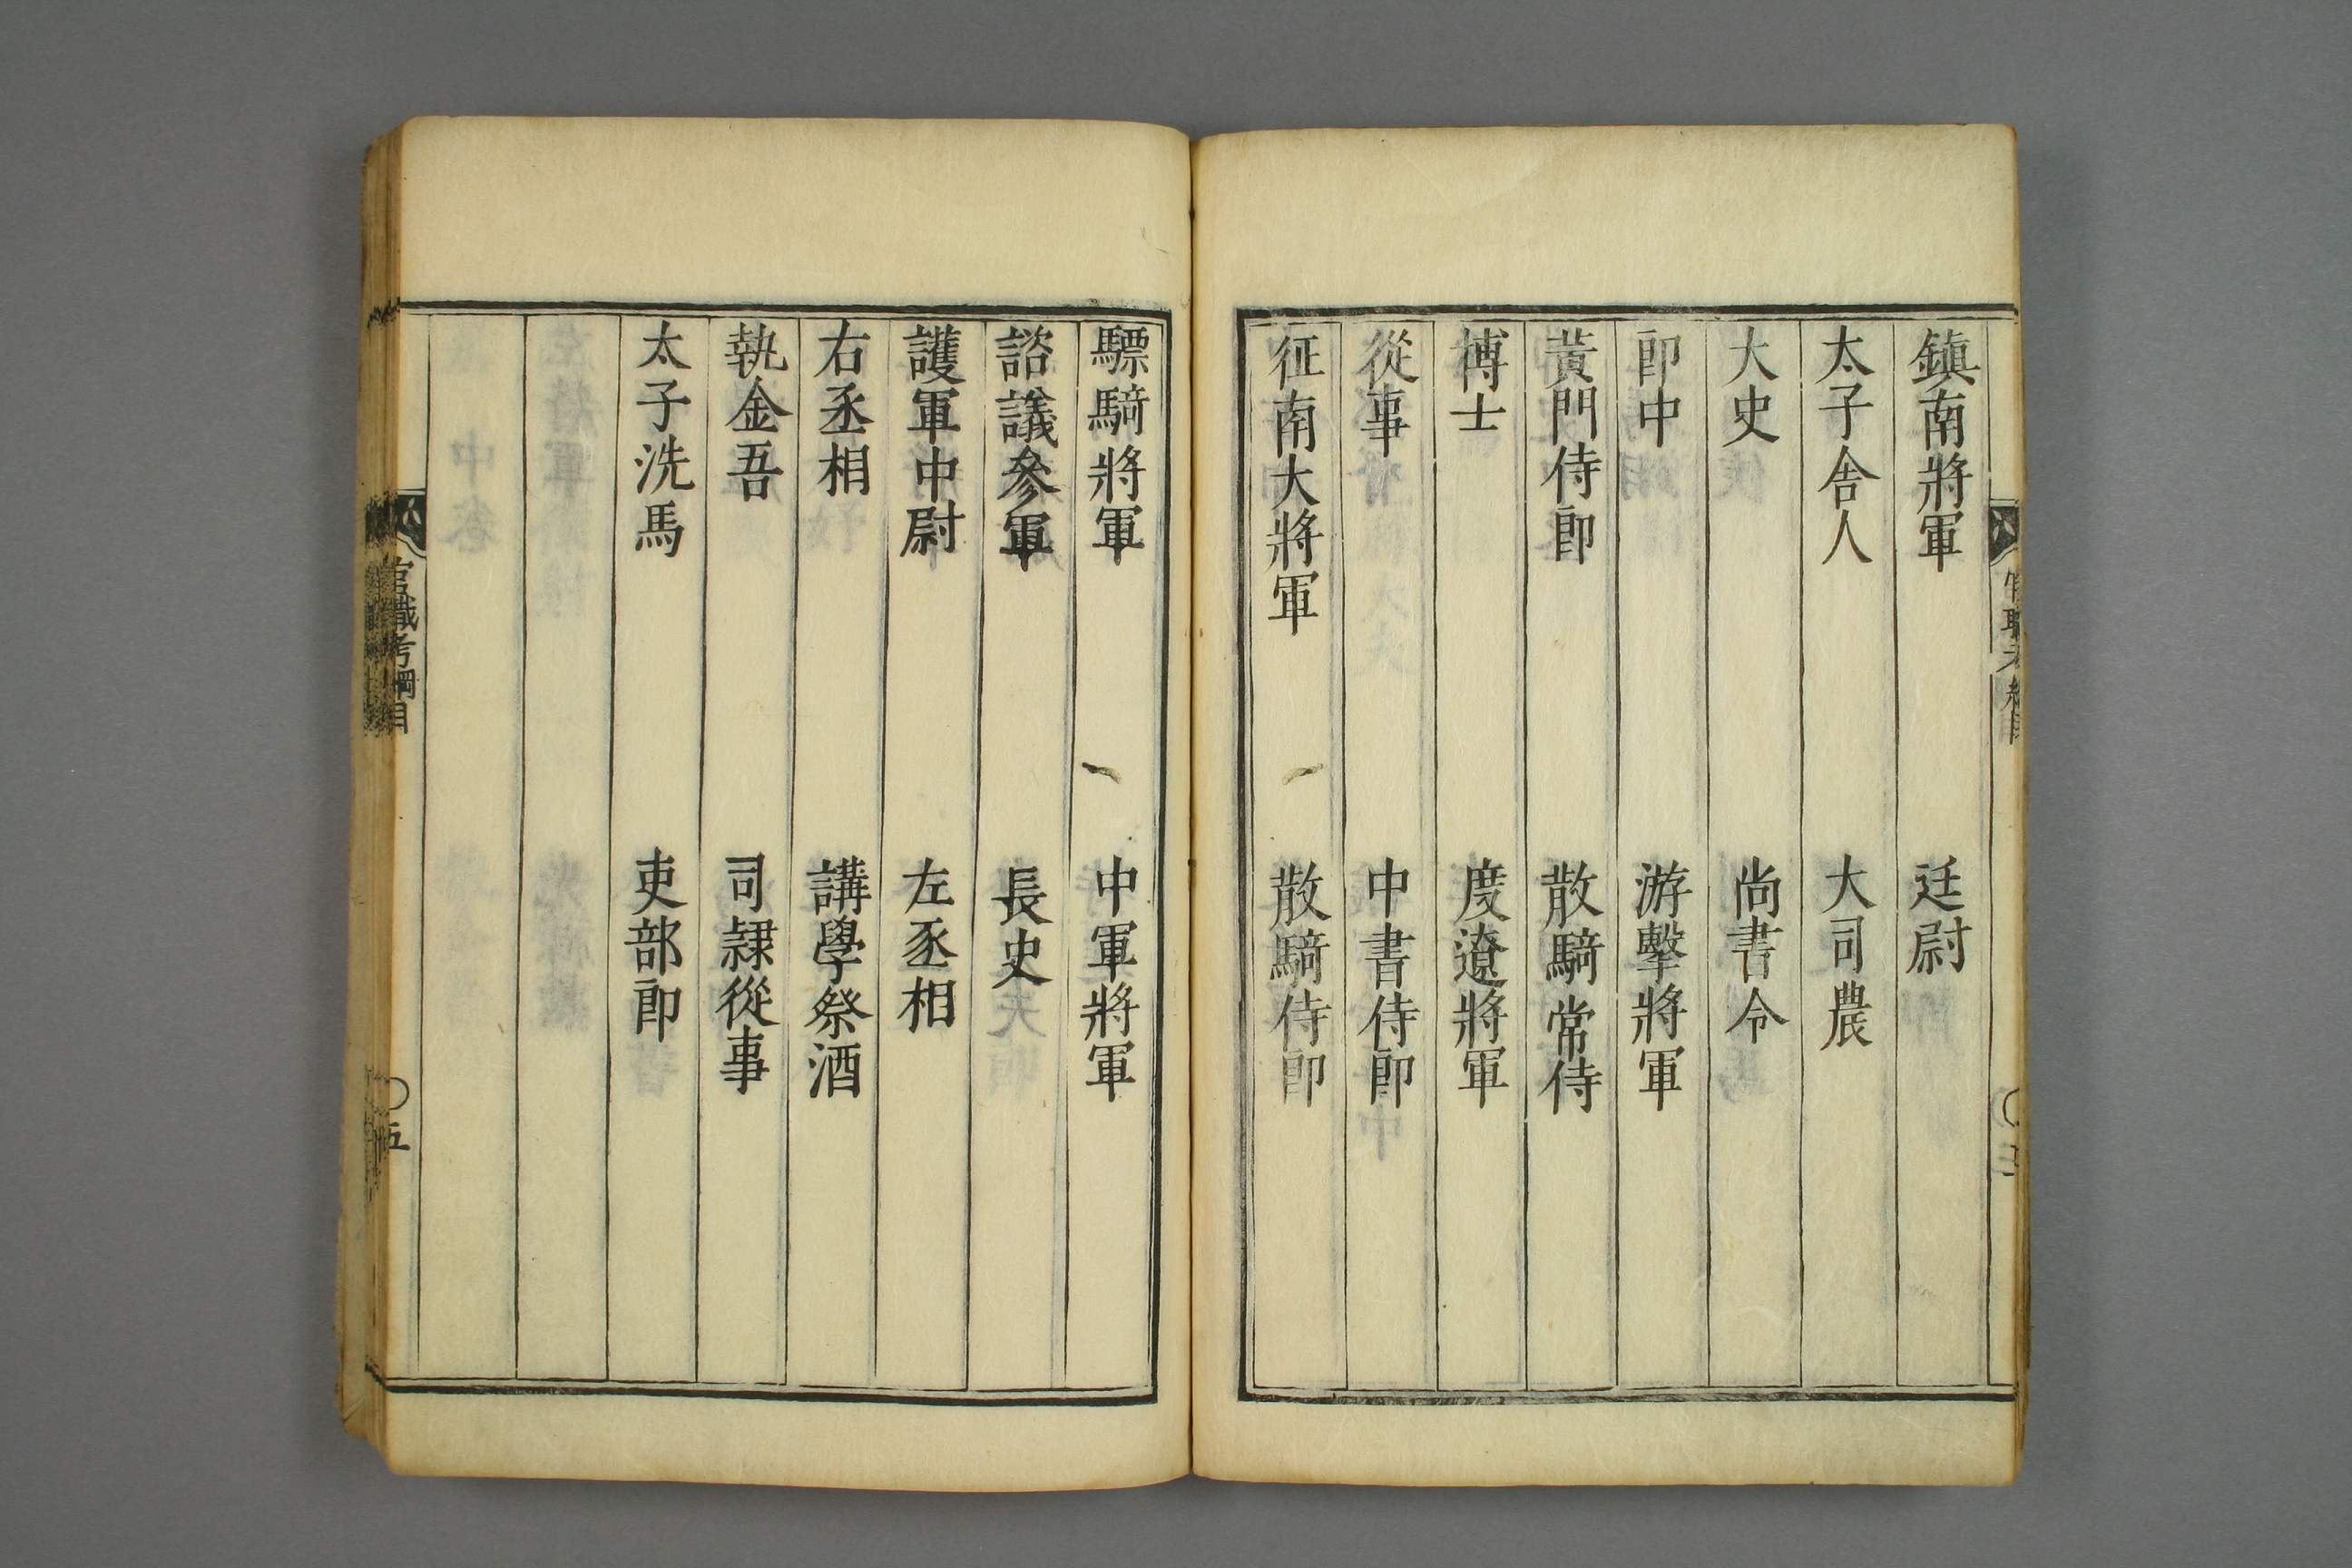 鎮南將軍　廷尉
太子舍人　大司農
大史　尚書令
郎中　游擊將軍
黃門侍郎　散騎常侍
博士　度遼將軍
從事　中書侍郎
征南大將軍　散騎侍郎
驃騎將軍　中軍將軍
諮議參軍　長史
護軍中尉　左丞相
右丞相　講學祭酒
執金吾　司隸從事
太子洗馬　吏部郎
官職考綱目
五